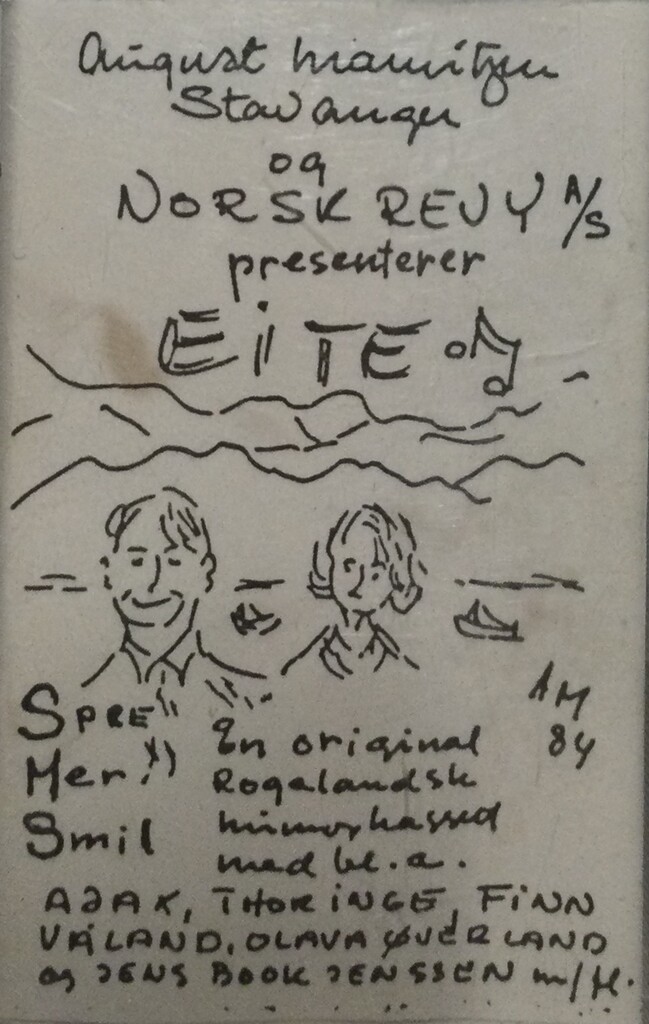 August Mauritzen
Stavanger
og
NORSK REVY A/S
presenterer
EiTE
SPRE
Mer!!)
Smil
AM
84
En original
Rogalandsk
humorkassed
med bl.a.
AJAX, THOR iNGE, FiNN
VÅLAND, OLAVA ØVERLAND
og JENS BOOK JENSSEN m/fl.